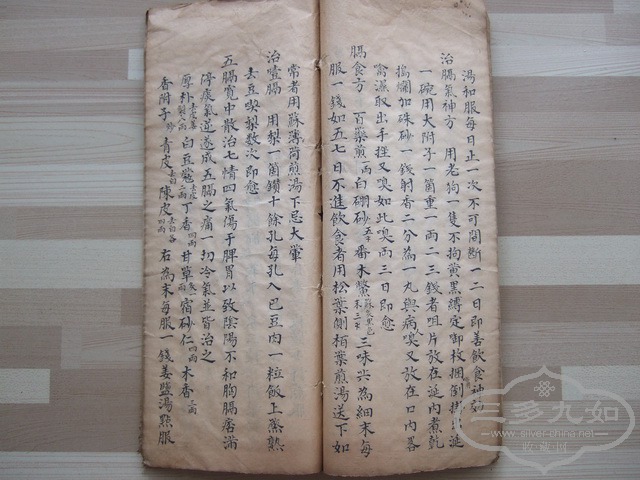 湯和服每日止一次不可間斷一二日即善飲食神效
治膈氣神方　用老狗一隻不拘黃黑縛定御枚捆倒掛　涎
一碗用大附子一箇重一兩二三錢者咀片放在涎內煮乾
搗爛加硃砂一錢射香二分為一丸與病嗅又放在口內畧
禽濕取出手挃又嗅如此嗅兩三日即愈
膈食方　百藥煎一兩白硼砂五錢番木鱉三味共為細末每
服一錢如五七日不進飲食者用松葉側栢葉煎湯送下如
常者用蘇薄荷煎湯下忌大葷
治噎膈　用梨一箇鑽十餘孔每孔入巴豆肉一粒飯上蒸熟
去豆喫梨數次即愈
五膈寬中散治七情四氣傷于脾胃以致陰陽不和胸膈痞滿
停痰氣逆遂成五膈之痛一切冷氣並皆治之
厚朴 白豆蔻二兩丁香四兩甘草 宿砂仁四兩木香三兩
香附子炒青皮去白陳皮四兩　右為末每服一錢姜鹽湯點服
三多九如
www.silver-china.net
收藏網